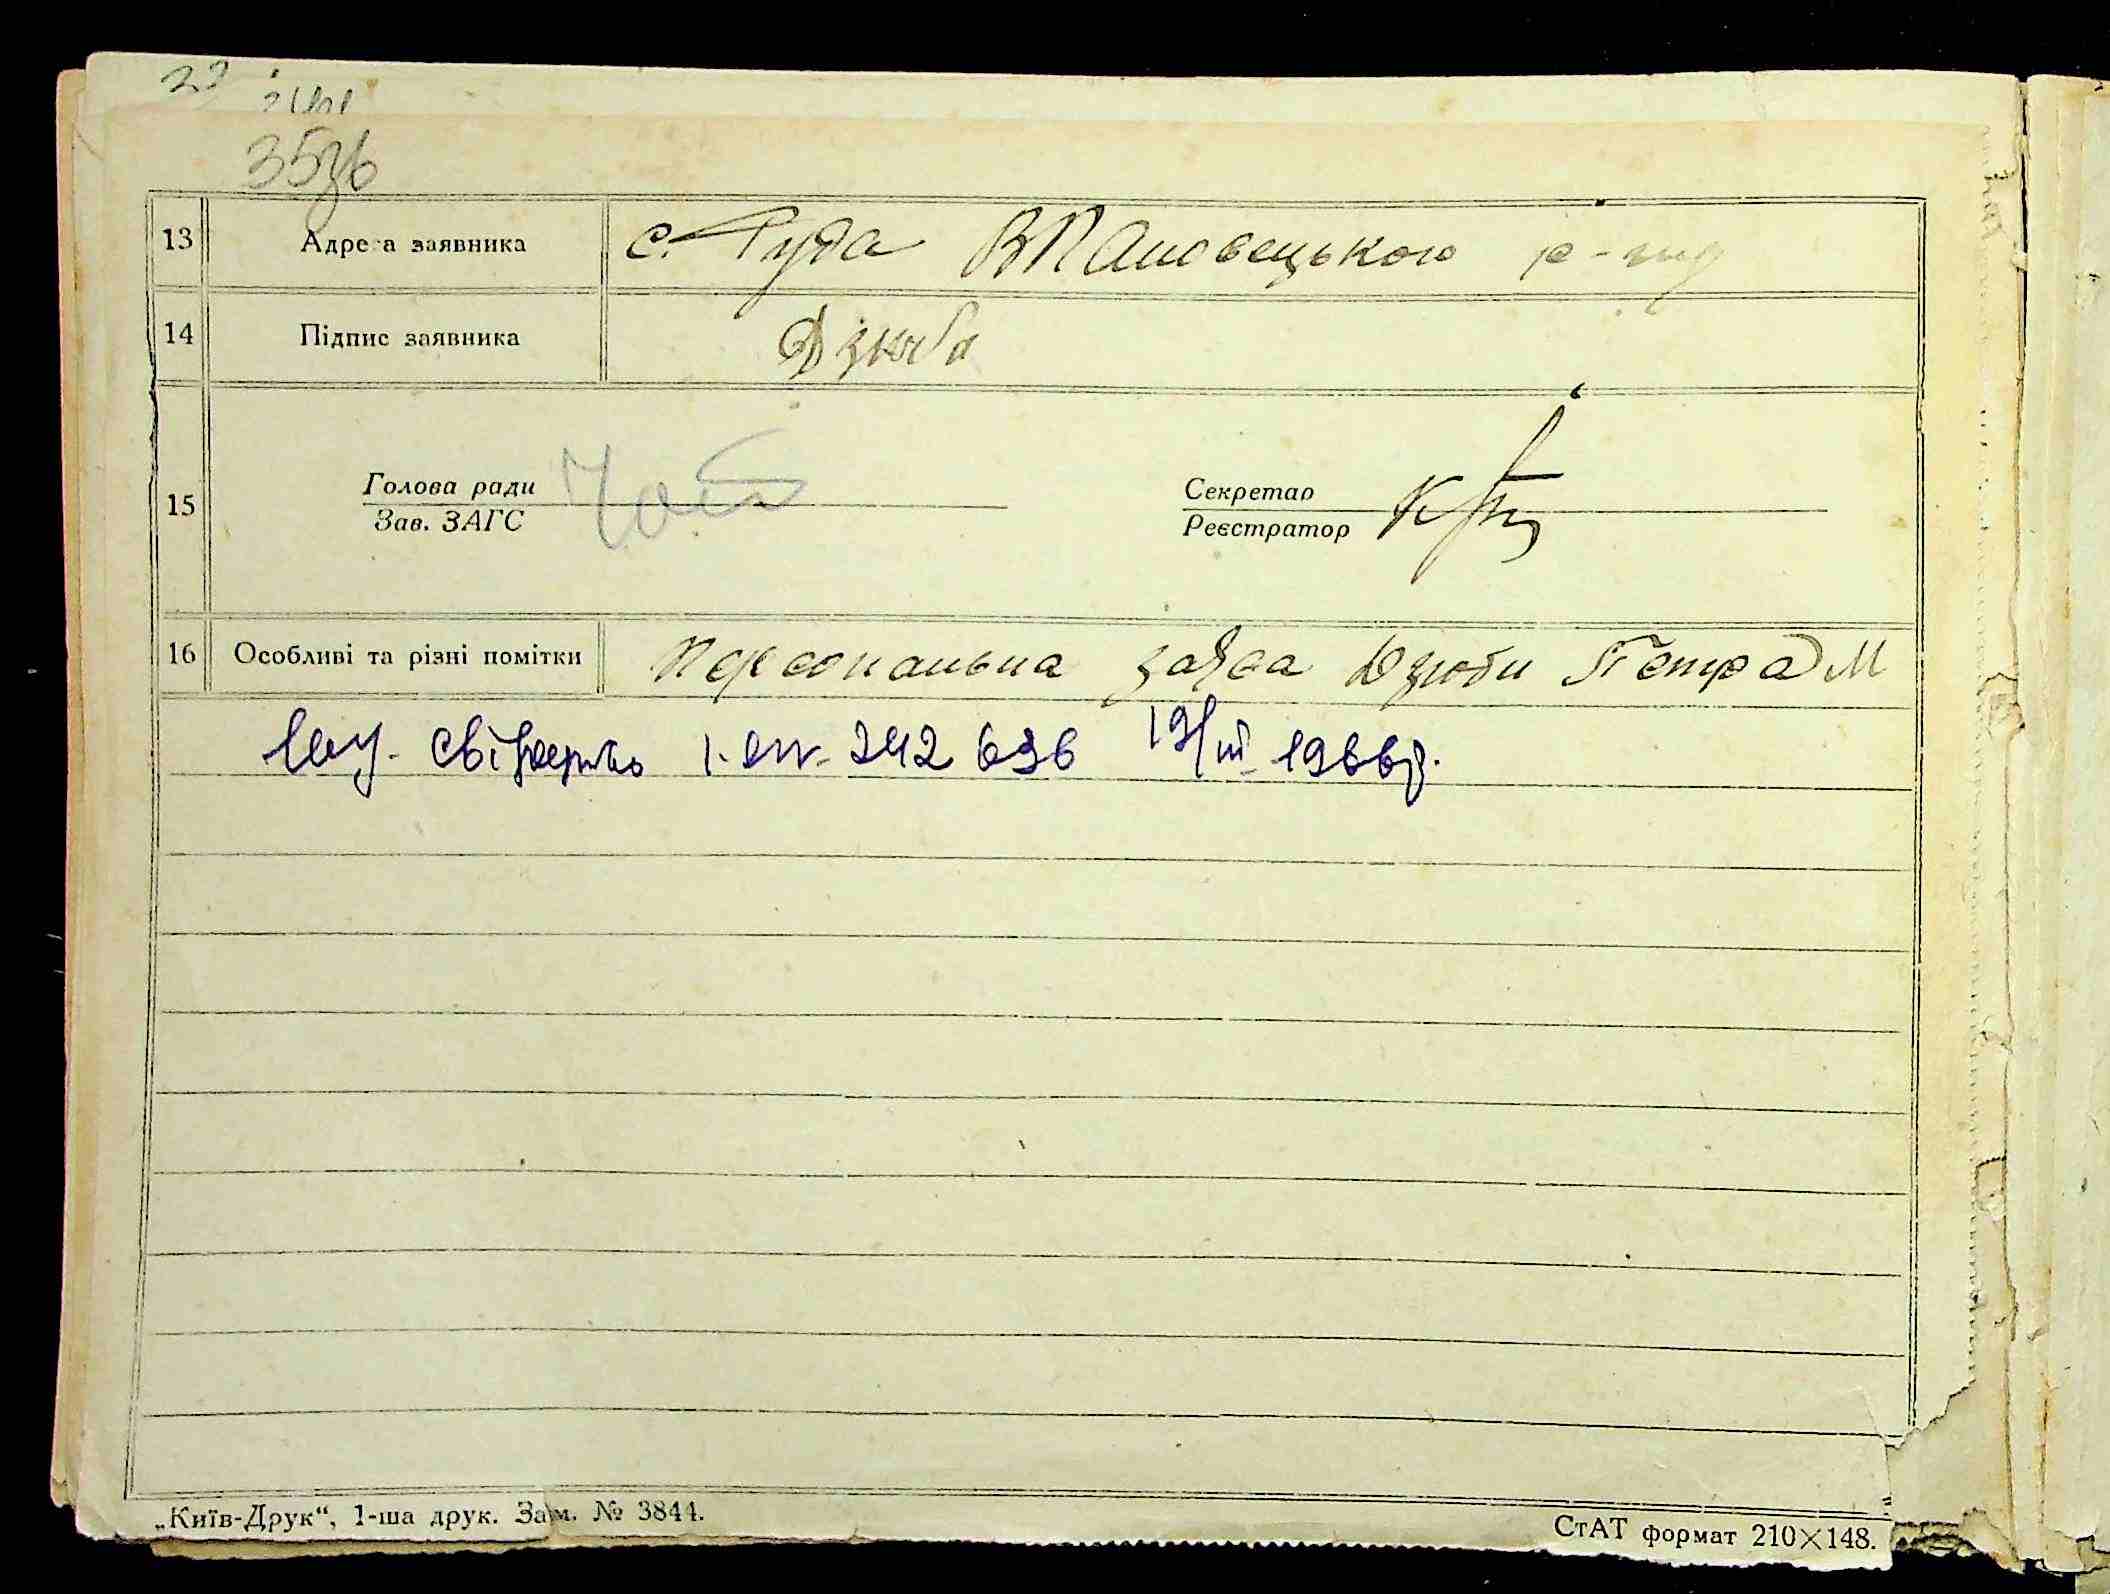 13 Адреса заявника с. Руда ВПоловецького р-ну
14 Підпис заявника Дзюба
15 Голова ради
Зав. ЗАГС
Секретар
Реєстратор
16 Особливі та різні помітки Персональна заява Дзюби Петра М
свідоцтво 242 696 19/III 1966р.
„Київ-Друк“, 1-ша друк. Зам. № 3844.
СтАТ формат 210×148.